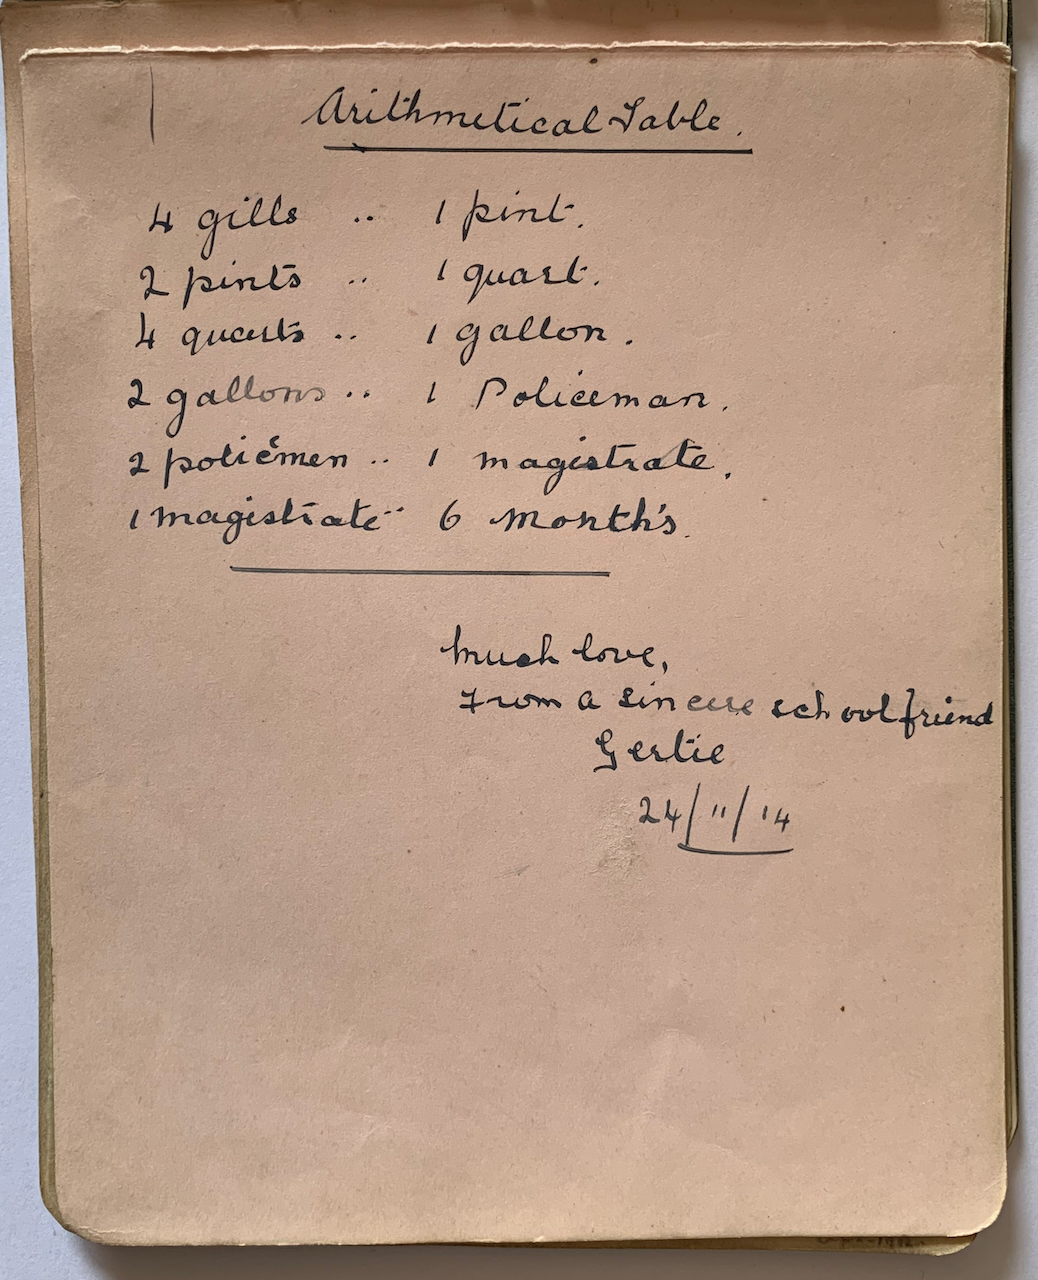 Arithmetical Table.
4 gills .. 1 pint.
2 pints .. 1 quart.
4 quarts .. 1 gallon.
2 gallons .. 1 Policeman.
2 policemen .. 1 magistrate.
1 magistrate .. 6 Month's.
Much love,
From a sincere school friend
Gertie
24/11/14